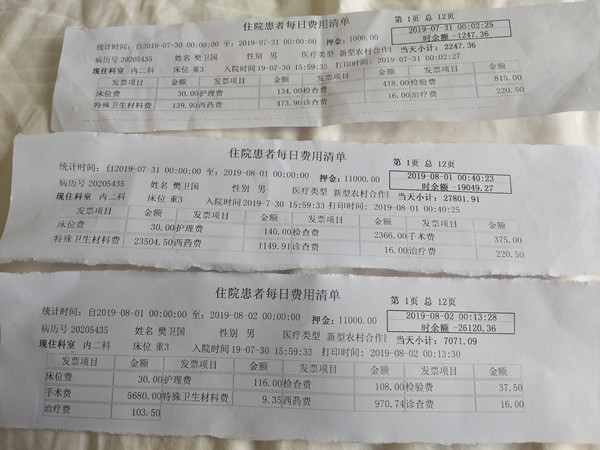 住院患者每日费用清单
第 1页 总 12页
统计时间: 自2019-07-30 00:00:00 至: 2019-07-31 00:00:00 押金: 1000.00 2019-07-31 00:02:25
时余额 -1247.36
病历号 20205435 姓名 樊卫国 性别 男 医疗类型 新型农村合作 当天小计: 2247.36
现住科室 内二科 床位 重3 入院时间19-07-30 15:59:33 打印时间: 2019-07-31 00:02:27
发票项目 金额 发票项目 金额 发票项目 金额 发票项目 金额
床位费 30.00 护理费 134.00 检查费 418.00 检验费 815.00
特殊卫生材料费 139.90 西药费 473.96 诊查费 16.00 治疗费 220.50
住院患者每日费用清单
第 1页 总 12页
统计时间: 自2019-07-31 00:00:00 至: 2019-08-01 00:00:00 押金: 11000.00 2019-08-01 00:40:23
时余额 -19049.27
病历号 20205435 姓名 樊卫国 性别 男 医疗类型 新型农村合作 当天小计: 27801.91
现住科室 内二科 床位 重3 入院时间2019-7-30 15:59:33 打印时间: 2019-08-01 00:40:25
发票项目 金额 发票项目 金额 发票项目 金额 发票项目 金额
床位费 30.00 护理费 140.00 检查费 2366.00 手术费 375.00
特殊卫生材料费 23504.50 西药费 1149.91 诊查费 16.00 治疗费 220.50
住院患者每日费用清单
第 1页 总 12页
统计时间: 自2019-08-01 00:00:00 至: 2019-08-02 00:00:00 押金: 11000.00 2019-08-02 00:13:28
时余额 -26120.36
病历号 20205435 姓名 樊卫国 性别 男 医疗类型 新型农村合作 当天小计: 7071.09
现住科室 内二科 床位 重3 入院时间19-07-30 15:59:33 打印时间: 2019-08-02 00:13:30
发票项目 金额 发票项目 金额 发票项目 金额 发票项目 金额
床位费 30.00 护理费 116.00 检查费 108.00 检验费 37.50
手术费 5680.00 特殊卫生材料费 9.35 西药费 970.74 诊查费 16.00
治疗费 103.50